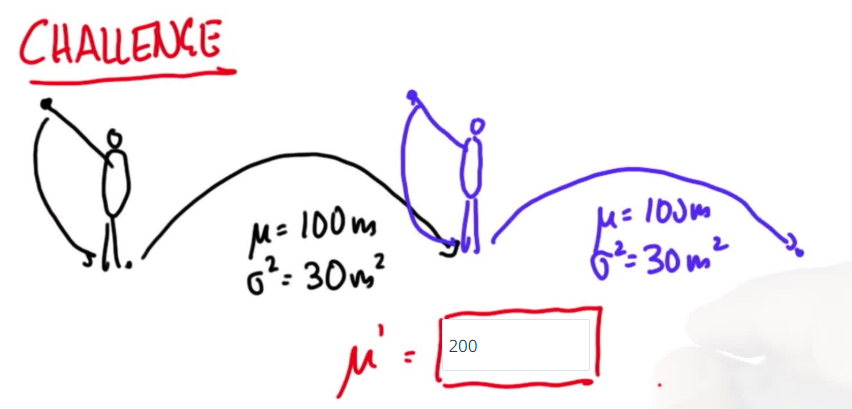 CHALLENGE
μ = 100m
σ² = 30m²
μ = 100m
σ² = 30m²
μ' = 200